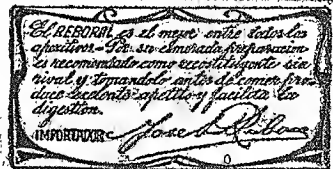 El REBORAL es el mejor entre todos los
aperitivos - Por su esmerada preparacion
es recomendado como reconstituyente sin
rival y tomandolo antes de comer pro-
duce excelente apetito y facilita la
digestion.
IMPORTADOR: José Ribera